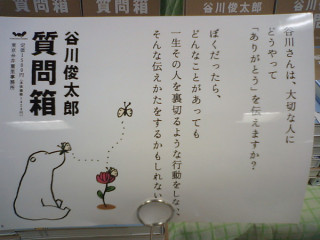 谷川さんは、大切な人に
どうやって
「ありがとう」を伝えますか？
ぼくだったら、
どんなことがあっても
一生その人を裏切るような行動をしない、
そんな伝えかたをするかもしれない
谷川俊太郎
質問箱